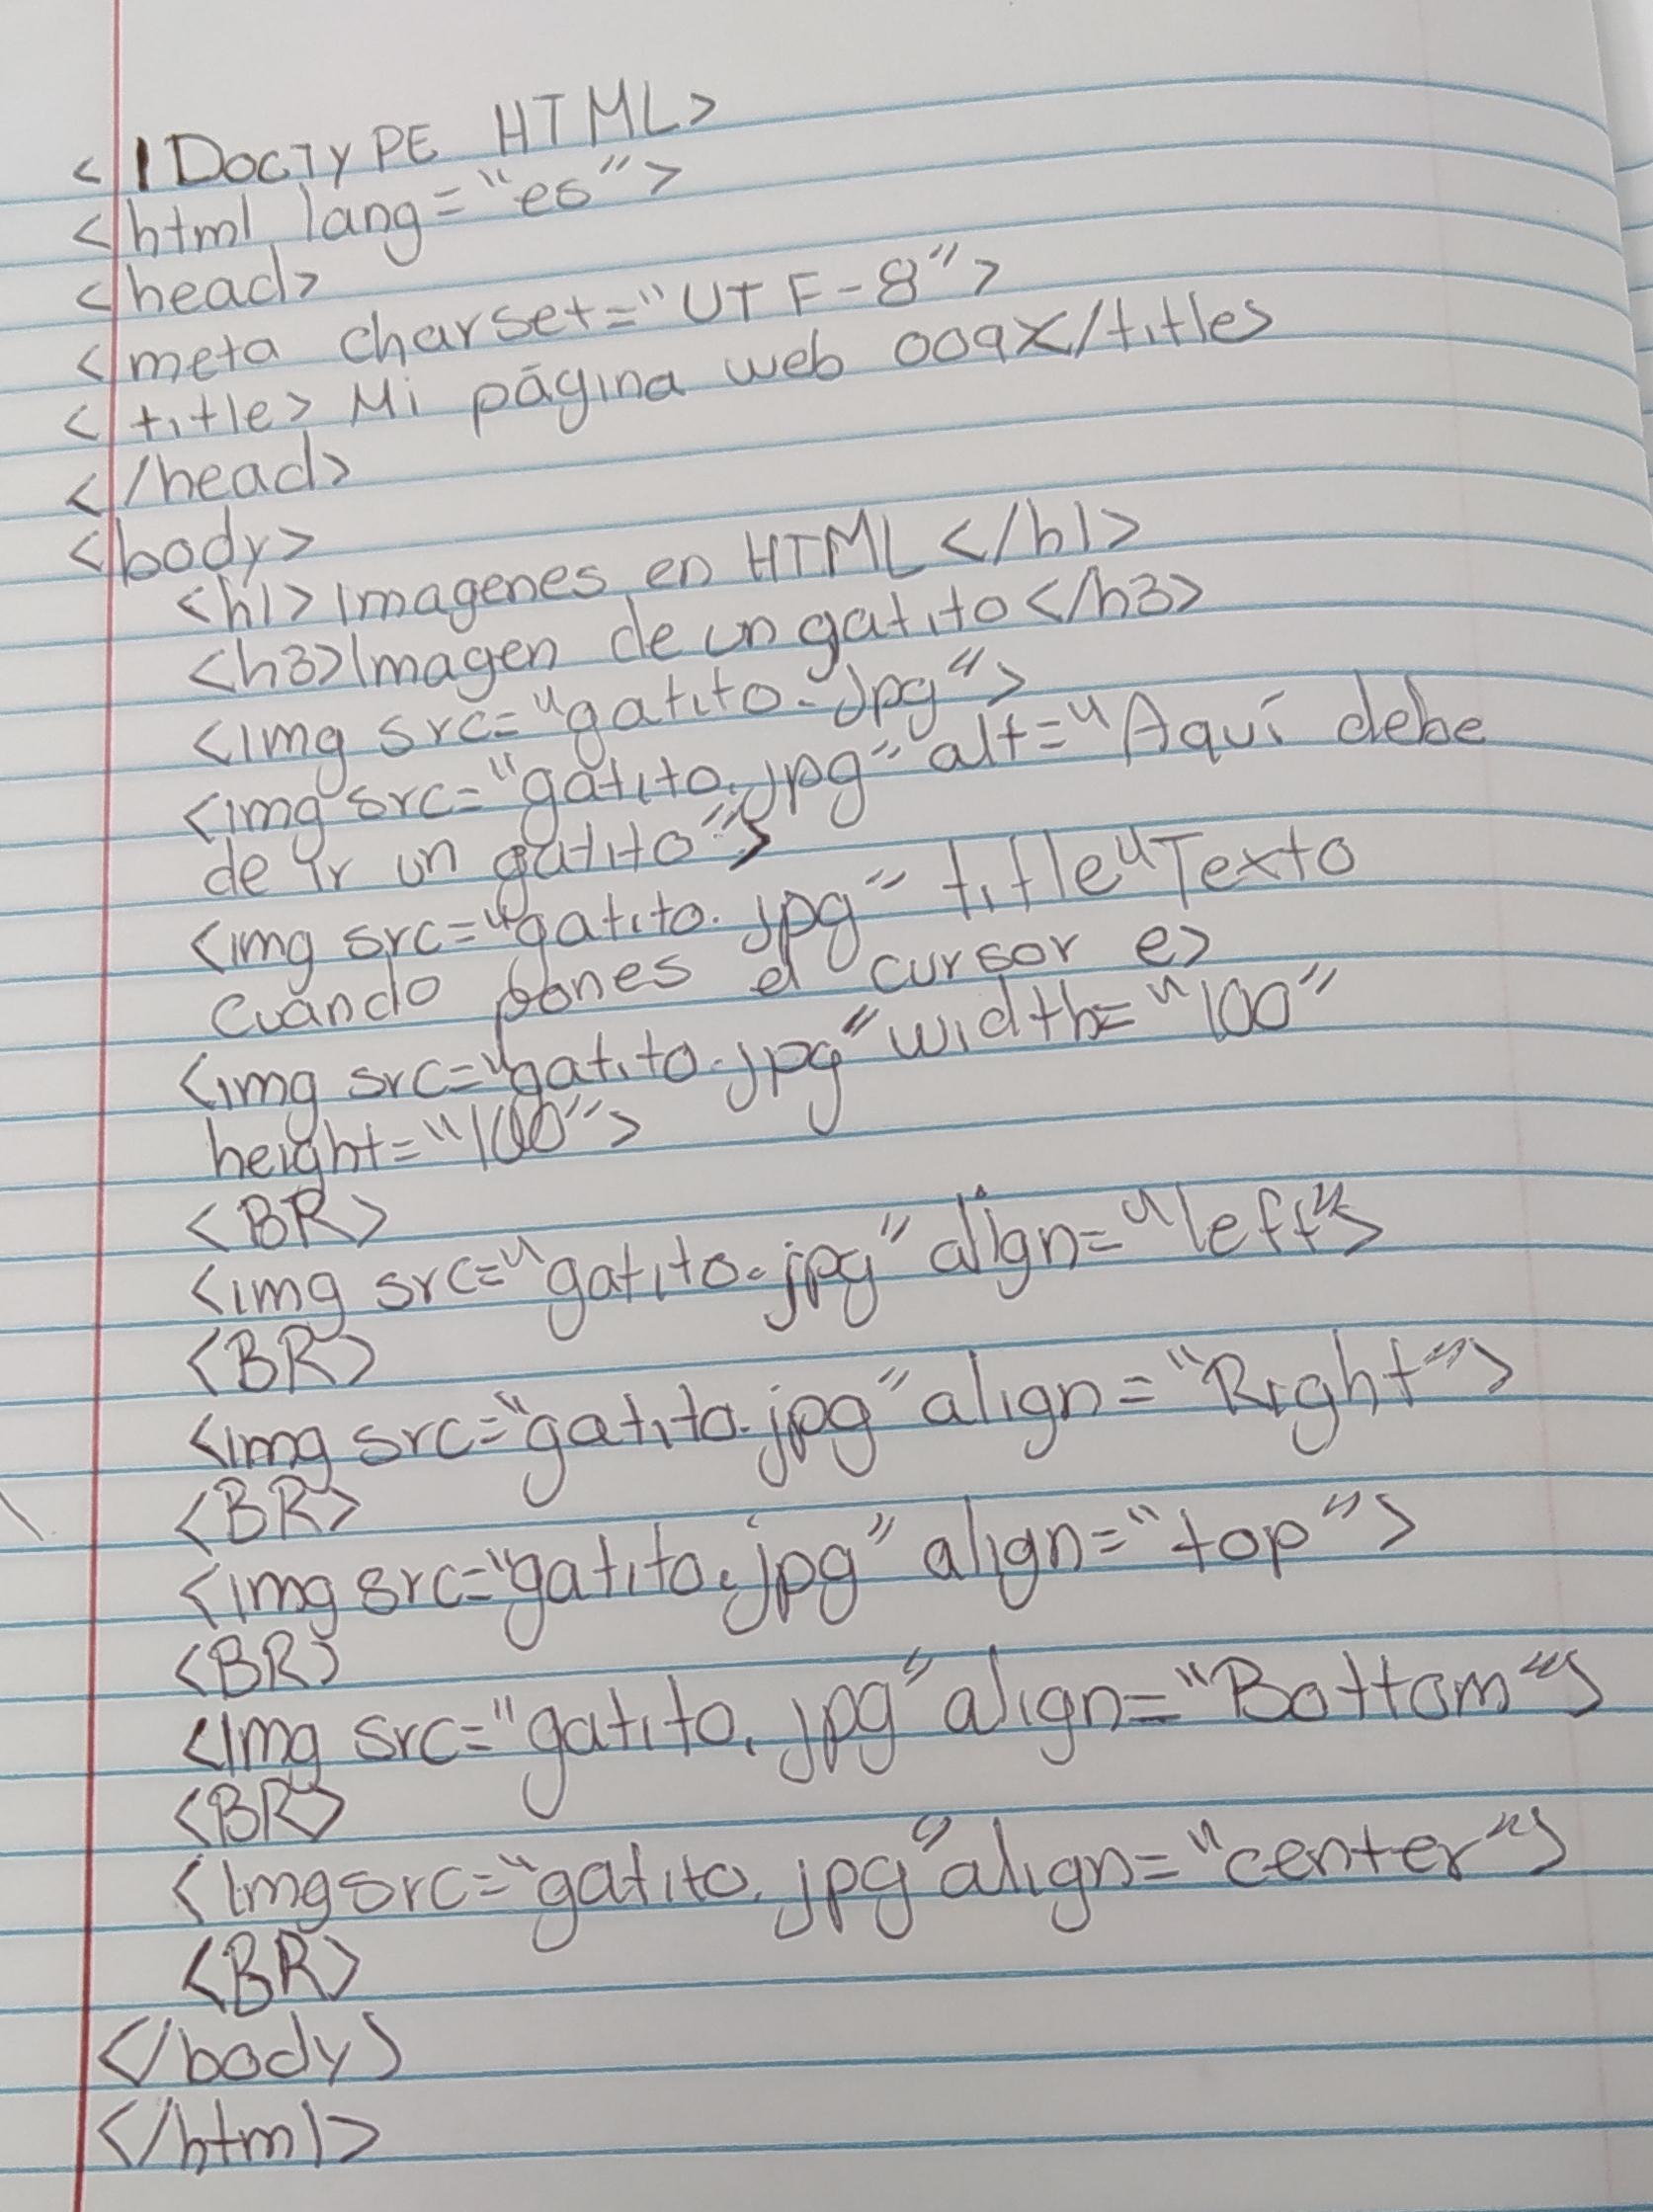 <!DOCTYPE HTML>
<html lang="es">
<head>
<meta charset="UTF-8">
<title> Mi página web 009X/title>
</head>
<body>
<h1>Imagenes en HTML</h1>
<h3>Imagen de un gatito</h3>
<img src="gatito.jpg">
<img src="gatito.jpg" alt="Aquí debe
de ir un gatito">
<img src="gatito.jpg" title"Texto
cuando pones el cursor e>
<img src="gatito.jpg" width="100"
height="100">
<BR>
<img src="gatito.jpg" align="left">
<BR>
<img src="gatito.jpg" align="Right">
<BR>
<img src="gatito.jpg" align="top">
<BR>
<img src="gatito.jpg" align="Bottom">
<BR>
<img src="gatito.jpg" align="center">
<BR>
</body>
</html>